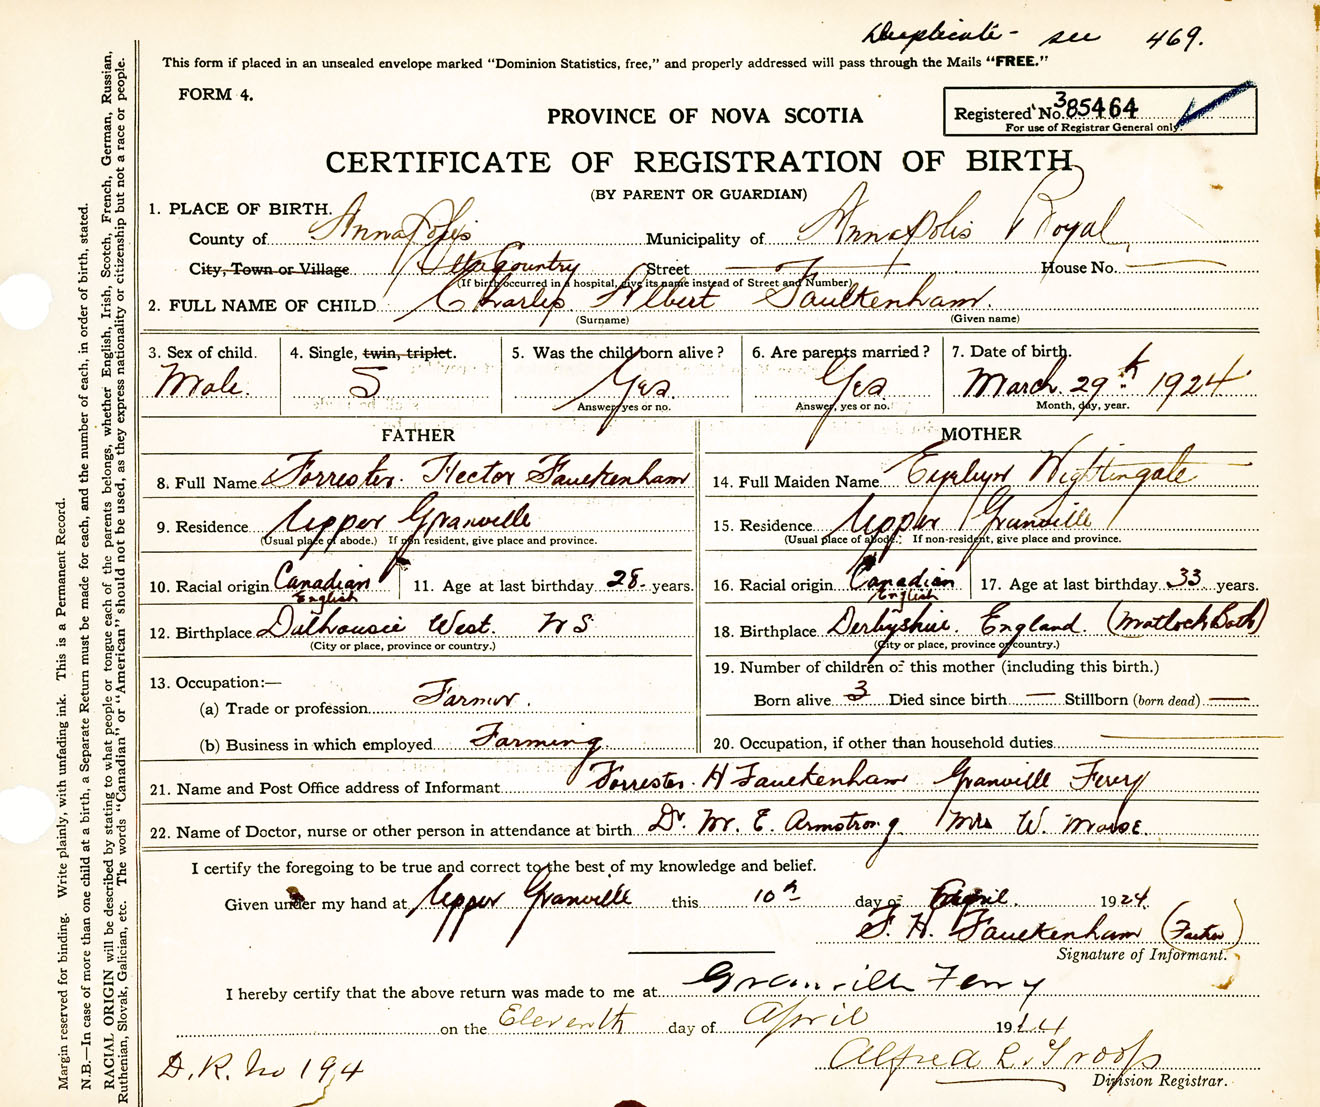 Duplicate - see 469.
This form if placed in an unsealed envelope marked "Dominion Statistics, free," and properly addressed will pass through the Mails "FREE."
FORM 4.
Registered No. 385464
For use of Registrar General only.
PROVINCE OF NOVA SCOTIA
CERTIFICATE OF REGISTRATION OF BIRTH
(BY PARENT OR GUARDIAN)
1. PLACE OF BIRTH.
County of Annapolis Municipality of Annapolis Royal
City, Town or Village Country Street — House No. —
(If birth occurred in a hospital, give its name instead of Street and Number)
2. FULL NAME OF CHILD Charles Albert Faulkenham.
(Surname) (Given name)
3. Sex of child. 4. Single, twin, triplet. 5. Was the child born alive? 6. Are parents married? 7. Date of birth.
Male. S Yes. Yes. March. 29th 1924
Answer, yes or no. Answer, yes or no. Month, day, year.
FATHER MOTHER
8. Full Name Forrester. Hector Faulkenham 14. Full Maiden Name Nightingale
9. Residence Upper Granville 15. Residence Upper Granville
(Usual place of abode.) If non resident, give place and province. (Usual place of abode.) If non-resident, give place and province.
10. Racial origin Canadian 11. Age at last birthday 28. years. 16. Racial origin Canadian 17. Age at last birthday 33 years.
English English
12. Birthplace Dalhousie West. N S 18. Birthplace Derbyshire. England. (Matlock Bath)
(City or place, province or country.) (City or place, province or country.)
13. Occupation:— 19. Number of children of this mother (including this birth.)
(a) Trade or profession Farmer. Born alive 3 Died since birth — Stillborn (born dead) —
(b) Business in which employed Farming. 20. Occupation, if other than household duties —
21. Name and Post Office address of Informant Forrester. H Faulkenham Granville Ferry
22. Name of Doctor, nurse or other person in attendance at birth Dr. M. E. Armstrong. Mrs W. Morse.
I certify the foregoing to be true and correct to the best of my knowledge and belief.
Given under my hand at Upper Granville this 10th day of April. 1924.
F. H. Faulkenham (Father)
Signature of Informant.
I hereby certify that the above return was made to me at Granville Ferry
on the Eleventh day of April 1924
Alfred L. Troop
Division Registrar.
D. R. No 194
Margin reserved for binding. Write plainly, with unfading ink. This is a Permanent Record.
N.B.—In case of more than one child at a birth, a Separate Return must be made for each, and the number of each, in order of birth, stated.
RACIAL ORIGIN will be described by stating to what people or tongue each of the parents belongs, whether English, Irish, Scotch, French, German, Russian,
Ruthenian, Slovak, Galician, etc. The words "Canadian" or "American" should not be used, as they express nationality or citizenship but not a race or people.